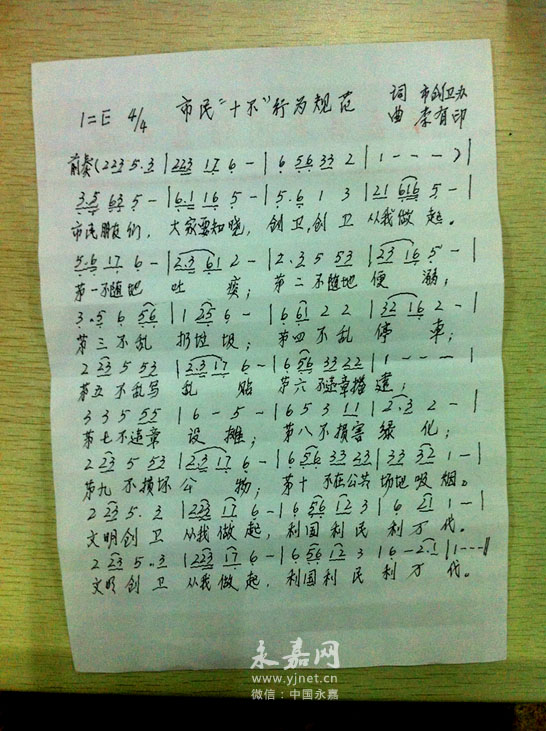 1=E 4/4 市民“十不”行为规范 词 市创卫办
曲 李有印
前奏(2 23 5·3 | 223 17 6 - | 6 56 33 2 | 1 - - - )|
3·5 63 5 - | 6·1 16 5 - | 5·6 1 3 | 21 616 5 - |
市民朋友们, 大家要知晓, 创卫,创卫 从我做起。
5·6 17 6 - | 2·3 61 2 - | 2·3 5 53 | 23 16 5 - |
第一不随地 吐 痰; 第二不随地 便 溺;
3·5 6 56 | 1 25 6 - | 6 61 2 2 | 32 16 2 - |
第三不乱 扔垃圾; 第四不乱 停 车;
2 23 5 53 | 2·3 17 6 - | 6 56 33 22 | 1 - - - |
第五不乱写 乱 贴 第六不违章搭建;
3 3 5 55 | 6 - 5 - | 6 5 3 11 | 2·3 2 - |
第七不违章 设 摊; 第八不损害 绿 化;
2 23 5 53 | 2·3 17 6 - | 6 56 33 23 | 33 32 1 - |
第九不损坏公 物; 第十不在公共场地吸烟。
2 23 5·3 | 223 17 6 - | 6 56 12 3 | 6 21 1 - |
文明创卫 从我做起, 利国利民 利万代。
2 23 5·3 | 223 17 6 - | 6 56 12 3 | 6 - 2·1 | 1 - - - ‖
文明创卫 从我做起, 利国利民 利万代。
永嘉网
www.yjnet.cn
微信:中国永嘉